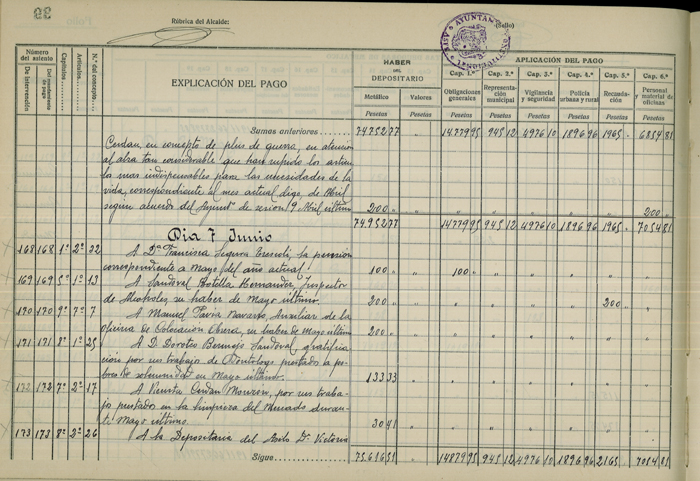 30
Rúbrica del Alcalde:
(Sello)
AYUNTA
Número del asiento
De intervención
Capítulos
Artículos
N.º del concepto
EXPLICACIÓN DEL PAGO
HABER DEL DEPOSITARIO
Metálico
Valores
Pesetas
Pesetas
APLICACIÓN DEL PAGO
Cap. 1.º
Cap. 2.º
Cap. 3.º
Cap. 4.º
Cap. 5.º
Cap. 6.º
Obligaciones generales
Representación municipal
Vigilancia y seguridad
Policía urbana y rural
Recaudación
Personal y material de oficinas
Pesetas
Pesetas
Pesetas
Pesetas
Pesetas
Pesetas
Sumas anteriores 74.752 77 " 14779 95 945 12 4976 10 1896 96 1965 - 6854 81
Cerdan, en concepto de plus de guerra, en atencion
al alza tan considerable que han sufrido los articu-
los mas indispensables para las necesidades de la
vida, correspondiente al mes actual digo, de Abril
según acuerdo del Ayuntº de sesion 9 Abril último 200 " 200 "
74.952 77 14779 95 945 12 4976 10 1896 96 1965 - 7054 81
Dia 7 Junio
168 168 1º 2º 22 A Dª Francisca Segura la pensión
correspondiente a Mayo del año actual 100 " 100 "
169 169 5º 1º 13 A Sandoval Botella Hernandez, Inspector
de Alcoholes su haber de Mayo último. 200 " 200 "
170 170 9º 7º 7 A Manuel Pavia Navarro, Auxiliar de la
oficina de Colocación Obrera, su haber de Mayo último 200 "
171 171 8º 1º 25 A D. Doroteo Bermejo Sandoval, gratifi-
cación por sus trabajos de Odontologo prestados a po-
bres de solemnidad en Mayo último. 133 33
172 172 7º 2º 17 A Cerdan Monzon, por sus traba-
jos prestados en la limpieza del Mercado duran-
te Mayo último 30 41
173 173 8º 2º 26 A la Depositaria del Dº Victorio
Sigue 75.616 51 14879 95 945 12 4976 10 1896 96 2165 - 7054 81